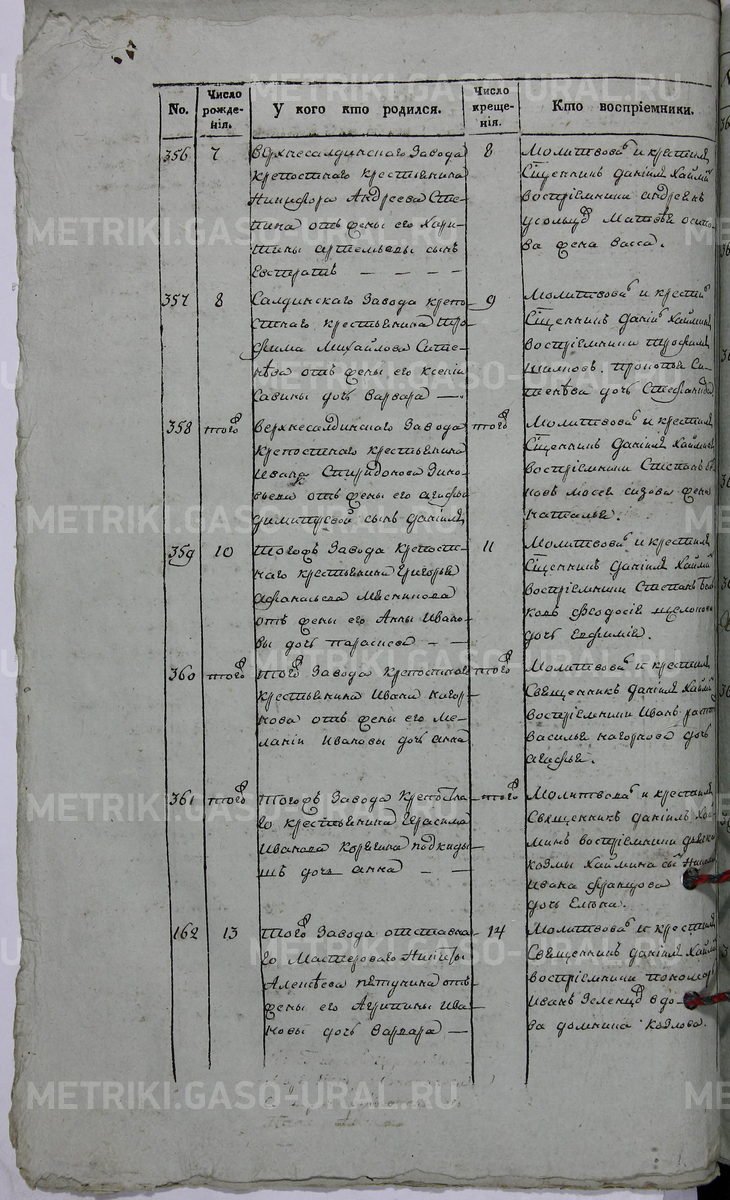 No.
Число
рожде-
нія.
У кого кто родился.
Число
креще-
нія.
Кто воспріемники.
356 7
Верхнесалдинскаго Завода
крепостнаго крестьянина
Никифора Андреева
отъ жены его Хари-
тины Артемьевы сынъ
Евстратъ — — —
8
Молитвова и крестилъ
Сщенникъ Даніилъ
воспріемники Андреянъ
Матвѣя
ва жена Васса.
357 8
Салдинскаго Завода крепо-
стнаго крестьянина Тро-
фима Михайлова Сите-
нѣва отъ жены его Ксеніи
Савины дочь Варвара —
9
Молитвова и крестил
Сщенникъ Даніи Хайминъ
воспріемники Трофимъ
Си-
тенѣва дочь Стефанида
358 того
Верхнесалдинскаго Завода
крепостнаго крестьянина
Ивана Спиридонова Зино-
вьева отъ жены его Агафьи
Димитревой сынъ Даніилъ
того
Молитвова и крестилъ
Сщенникъ Даніилъ Хайминъ
воспріемники Степанъ
ковъ Мосея Сизова жена
Наталья.
359 10
Тогожъ Завода крепост-
наго крестьянина Григорья
Афанасьева Мясникова
отъ жены его Анны Ивано-
вы дочь Параскева — —
11
Молитвова и крестилъ
Сщенникъ Даніилъ
воспріемники Степанъ
ковъ Феодосія
дочь Евфимія.
360 того
Того Завода крепостнаго
крестьянина Ивана Нагор-
нова отъ жены его Ме-
ланіи Ивановы дочь Анна
того
Молитвова и крестилъ
Священникъ Даніилъ
воспріемники Иванъ
Василья Нагорнова дочь
Агафья.
361 того
Тогожъ Завода крепостна-
го крестьянина Герасима
Иванова Корягина подкиды
шъ дочь Анна — —
того
Молитвова и крестилъ
Священникъ Даніилъ Хай-
минъ воспріемники дьячка
Козмы Хаймина сы
Ивана Францова
дочь Елена.
162 13
Того Завода отставна-
го Мастероваго Никиты
Алексѣева Петунина отъ
жены его Агрипины Ива-
новы дочь Варвара —
14
Молитвова и крестилъ
Священникъ Даніилъ
воспріемники пономарь
Иванъ вдо-
ва Домнина Козлова.
METRIKI.GASO-URAL.RU